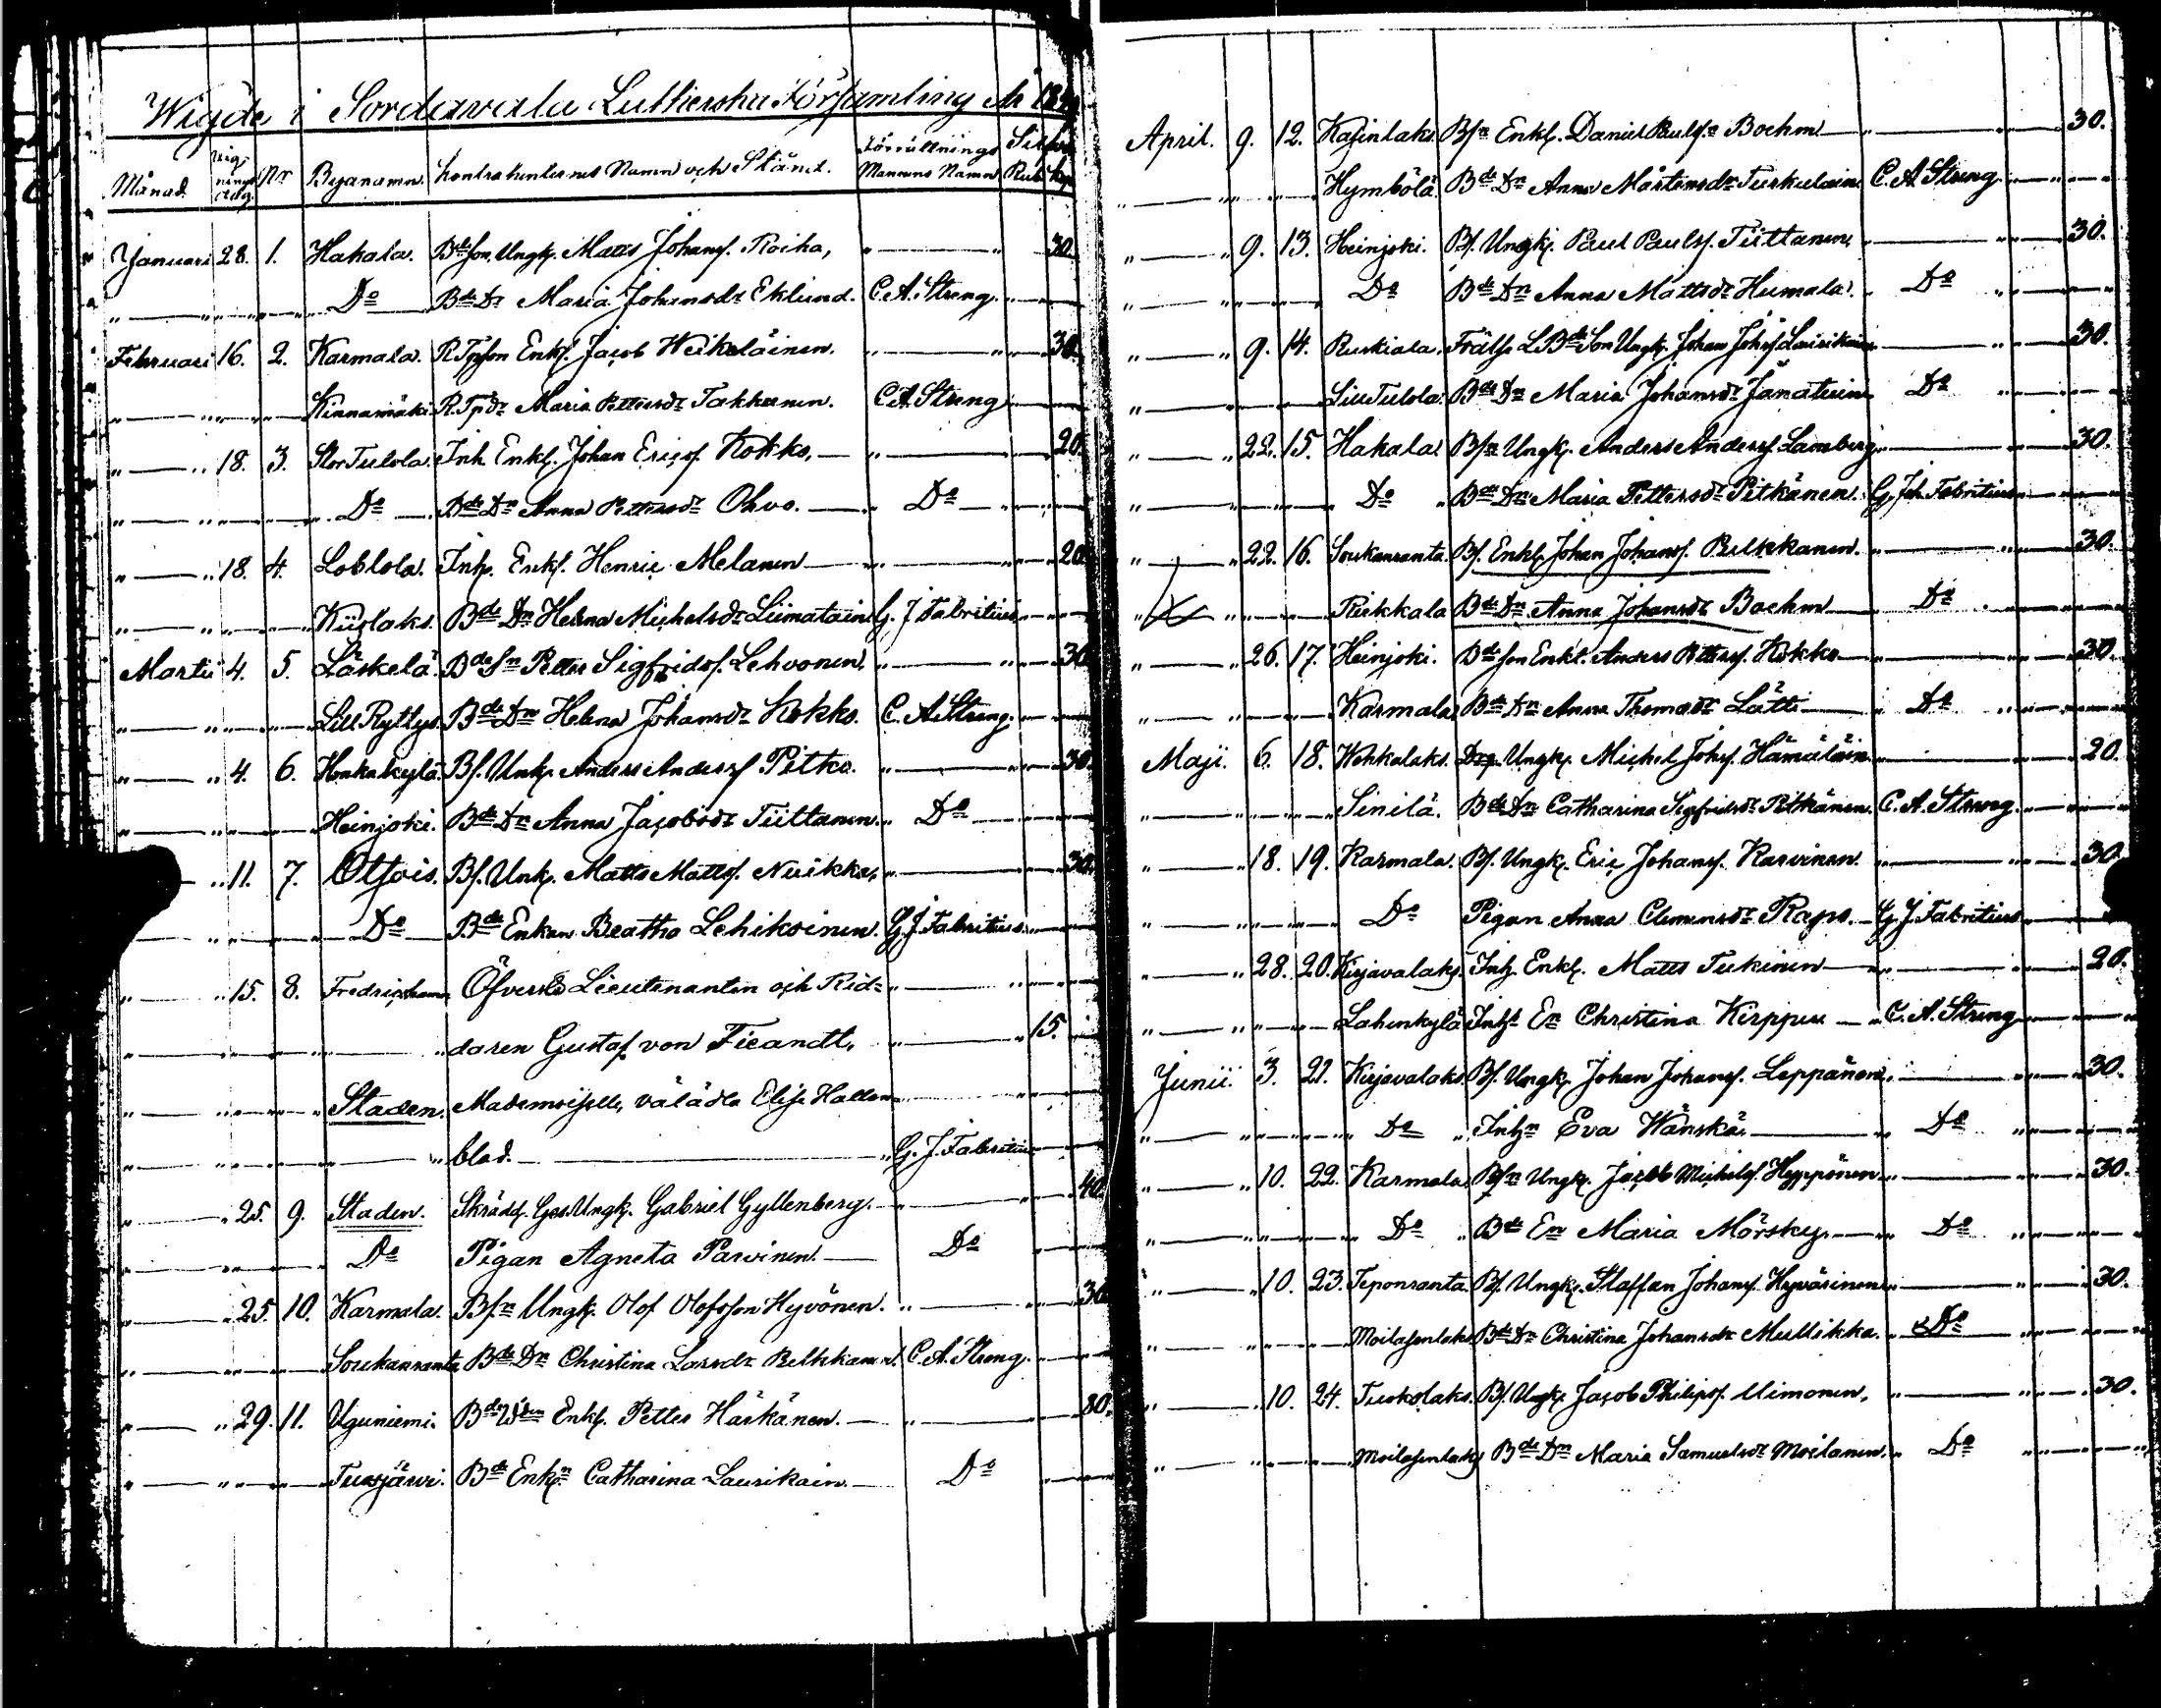 Wigde i Sordawala Lutherska Församling År
Månad Wignings dag Nr Byanamn Kontrahenternes Namn och Stånd. Förrättnings Mannens Namn Silfver Rub. Kop.
Januari 28. 1. Hakala. Bde Son Ungk. Matts Johansf. Roiha, „ 30.
„ „ „ Do Bde Dr Maria Johansdr Eklund. C. A. Streng. „
Februari 16. 2. Karmala. R. Tpson Enkl. Jacob Weikeläinen. „ 30.
„ „ „ Kinnamäki R. Tpdr Maria Pettersdr Takkunen. C. A. Streng „
„ 18. 3. Stor Tulola. Inh. Enkl. Johan Ericsf. Kokko, „ 20.
„ „ „ Do Bde Dn Anna Pettersdr Ohvo. Do „
„ 18. 4. Loblola. Inh. Enkl. Henric Melanen „ 20.
„ „ „ Kiislaks. Bde Dn Helena Michelsdr Liimatain G. J. Fabritius „
Martii 4. 5. Läskelä. Bde Sn Petter Sigfridsf. Lehvonen, „ 30.
„ „ „ Lill Rytlys. Bde Dn Helena Johansdr Kokko. C. A. Streng. „
„ 4. 6. Honkakylä. Bf. Unk. Anders Andersf Pitko. „ 30.
„ „ „ Heinjoki. Bde Dn Anna Jacobsdr Tiittanen. Do „
„ 11. 7. Otsois. Bf. Unk. Matts Mattsf. Nuikka, „ 30.
„ „ Do Bde Enkan Beatha Lehikoinen. G. J. Fabritius. „
„ 15. 8. Fredricshamn Öfverste Lieutenanten och Rid= „
„ „ daren Gustaf von Fieandt, „ 15.
„ „ „ Staden. Mademoiselle, välädla Elise Hallon= „
„ „ „ blad. „ G. J. Fabritius „
„ 25. 9. Staden. Skrädd. Ges. Ungk. Gabriel Gyllenberg. „ 40.
„ „ Do Pigan Agneta Parvinen. Do „
„ 25. 10. Karmala. Bfn Ungk. Olof Olofsson Hyvönen. „ 30.
„ „ „ Soukanranta Bde Dn Christina Larsdr Pelkkanen. C. A. Streng. „
„ 29. 11. Uguniemi. Enkl. Petter Härkänen. „ 80.
„ „ „ Tiusjärvi. Bde Enkn Catharina Laurikain. Do „
April. 9. 12. Kasinlaks. Bfn Enkl. Daniel Paulsn Boehm „ 30.
„ „ „ Hymbölä. Bde Dn Anna Mårtensdr Turkulain C. A. Streng. „
„ 9. 13. Heinjoki. Bf. Ungk. Paul Paulsf. Tiittanen, „ 30.
„ „ „ Do Bde Dn Anna Mattsdr Humala. Do „
„ 9. 14. Ruskiala. Frälse L. Bde Son Ungk. Johan Johsf Laurikain „ 30.
„ „ „ Lill Tulola. Bde Dn Maria Johansdr Jämaturin Do „
„ 22. 15. Hakala. Bfn Ungk. Anders Andersf. Lamberg „ 30.
„ „ „ Do „ Bde Dn Maria Pettersdr Pitkänen. G. Joh. Fabritius „
„ 22. 16. Soukanranta. Bf. Enkl. Johan Johansf. Pelkkanen. „ 30.
„ „ „ Riekkala Bde Dn Anna Johansdr Boehm Do „
„ 26. 17. Heinjoki. Bde Son Enkl. Anders Pettersf. Kokko „ 30.
„ „ „ Karmala. Bde Dn Anna Thomadr Lätti „ Do „
Maji. 6. 18. Wehkalaks. Drg. Ungk. Michel Johsf. Hämäläin „ 20.
„ „ „ Sinilä. Bde Dn Catharina Sigfridsdr Pitkänen. C. A. Streng. „
„ 18. 19. Karmala. Bf. Ungk. Eric Johansf. Karvinen. „ 30.
„ „ „ Do Pigan Anna Clemensdr Rapo. G. J. Fabritius „
„ 28. 20. Kirjavalaks. Inh. Enkl. Matts Tukinen „ 20.
„ „ „ Lahenkylä Inhs En Christina Kirppu C. A. Streng „
Junii. 3. 21. Kirjavalaks. Bf. Ungk. Johan Johansf. Leppänen. „ 30.
„ „ „ Do „ Inhn Eva Wänskä. „ Do „
„ 10. 22. Karmala. Bfn Ungk. Jacob Michelsf. Hypponen „ 30.
„ „ „ Do „ Bde En Maria Mörsky. „ Do „
„ 10. 23. Teponranta. Bf. Ungk. Staffan Johansf. Hyväsinen „ 30.
„ „ „ Moilasenlaks Bde Dn Christina Johansdr Mullikka. Do „
„ 10. 24. Tuokslaks. Bf. Ungk. Jacob Philipsf. Uimonen, „ 30.
„ „ „ Moilasenlaks Bde Dn Maria Samuelsdr Moilanen. Do „